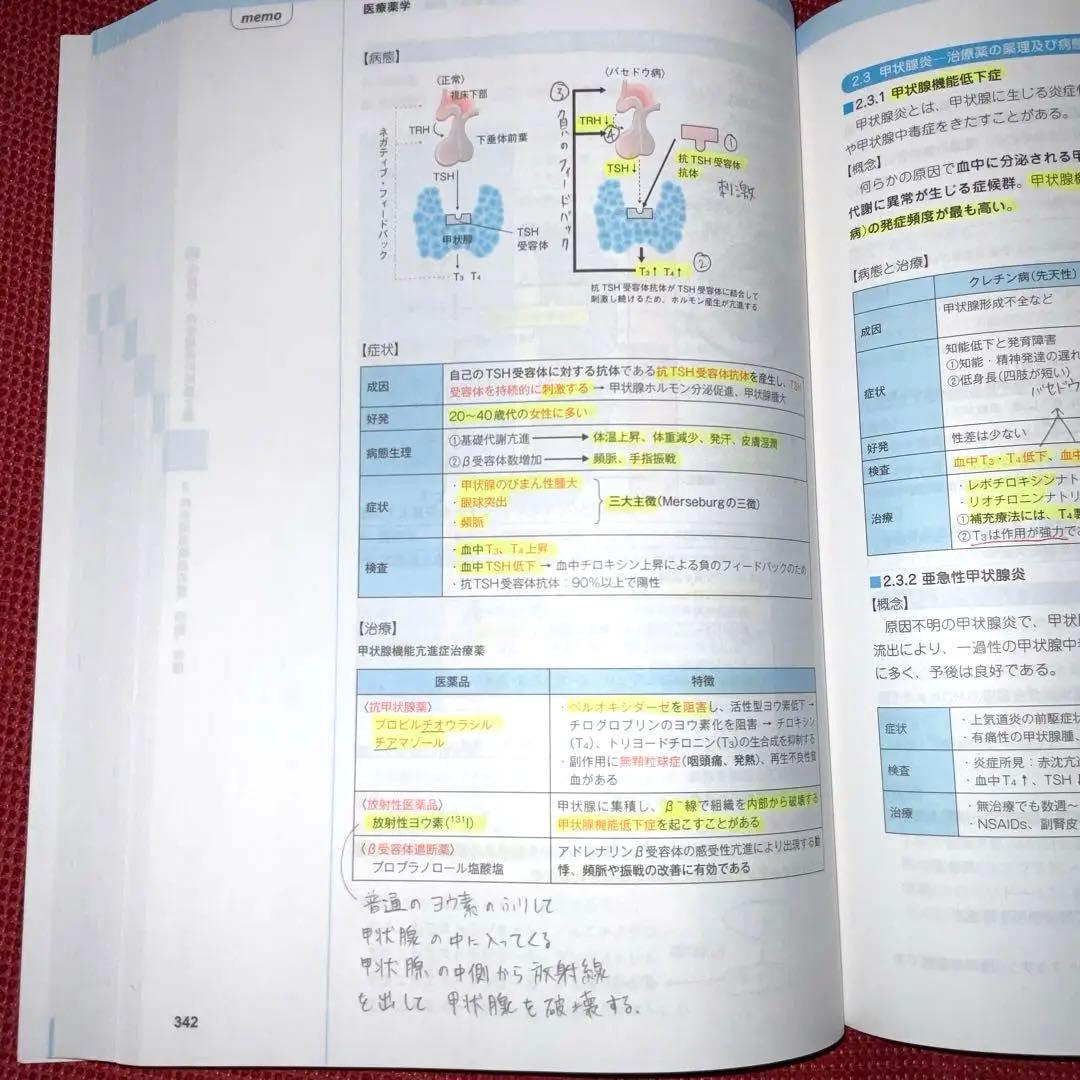 memo
医療薬学
【病態】
〈正常〉
視床下部
TRH
下垂体前葉
TSH
ネガティブ・フィードバック
甲状腺
TSH
受容体
T₃ T₄
〈バセドウ病〉
③
負のフィードバック
TRH↓
④
TSH↓
①
抗TSH受容体
抗体
刺激
②
T₃↑ T₄↑
抗TSH受容体抗体がTSH受容体に結合して
刺激し続けるため、ホルモン産生が亢進する
【症状】
成因
自己のTSH受容体に対する抗体である抗TSH受容体抗体を産生し、TSH
受容体を持続的に刺激する → 甲状腺ホルモン分泌促進、甲状腺腫大
好発
20～40歳代の女性に多い
病態生理
①基礎代謝亢進 → 体温上昇、体重減少、発汗、皮膚湿潤
②β受容体数増加 → 頻脈、手指振戦
症状
・甲状腺のびまん性腫大
・眼球突出
・頻脈
三大主徴(Merseburgの三徴)
検査
・血中T₃、T₄上昇
・血中TSH低下 → 血中チロキシン上昇による負のフィードバックのため
・抗TSH受容体抗体：90%以上で陽性
【治療】
甲状腺機能亢進症治療薬
医薬品
特徴
〈抗甲状腺薬〉
プロピルチオウラシル
チアマゾール
・ペルオキシダーゼを阻害し、活性型ヨウ素低下 →
チログロブリンのヨウ素化を阻害 → チロキシン
(T₄)、トリヨードチロニン(T₃)の生合成を抑制する
・副作用に無顆粒球症(咽頭痛、発熱)、再生不良性貧
血がある
〈放射性医薬品〉
放射性ヨウ素(¹³¹I)
甲状腺に集積し、β⁻線で組織を内部から破壊する
甲状腺機能低下症を起こすことがある
〈β受容体遮断薬〉
プロプラノロール塩酸塩
アドレナリンβ受容体の感受性亢進により出現する動
悸、頻脈や振戦の改善に有効である
普通のヨウ素のふりして
甲状腺の中に入ってくる
甲状腺の中側から放射線
を出して甲状腺を破壊する.
342
2.3 甲状腺炎―治療薬の薬理及び病態
■2.3.1 甲状腺機能低下症
甲状腺炎とは、甲状腺に生じる炎症
や甲状腺中毒症をきたすことがある。
【概念】
何らかの原因で血中に分泌される甲
代謝に異常が生じる症候群。甲状腺機
病)の発症頻度が最も高い。
【病態と治療】
クレチン病(先天性)
成因
甲状腺形成不全など
症状
知能低下と発育障害
①知能・精神発達の遅れ
②低身長(四肢が短い)
バセドウ
好発
性差は少ない
検査
血中T₃・T₄低下、血中
治療
・レボチロキシンナト
・リオチロニンナトリ
①補充療法には、T₄製
②T₃は作用が強力で
■2.3.2 亜急性甲状腺炎
【概念】
原因不明の甲状腺炎で、甲状
流出により、一過性の甲状腺中
に多く、予後は良好である。
症状
・上気道炎の前駆症状
・有痛性の甲状腺腫、
検査
・炎症所見：赤沈亢進
・血中T₄↑、TSH↓
治療
・無治療でも数週～
・NSAIDs、副腎皮